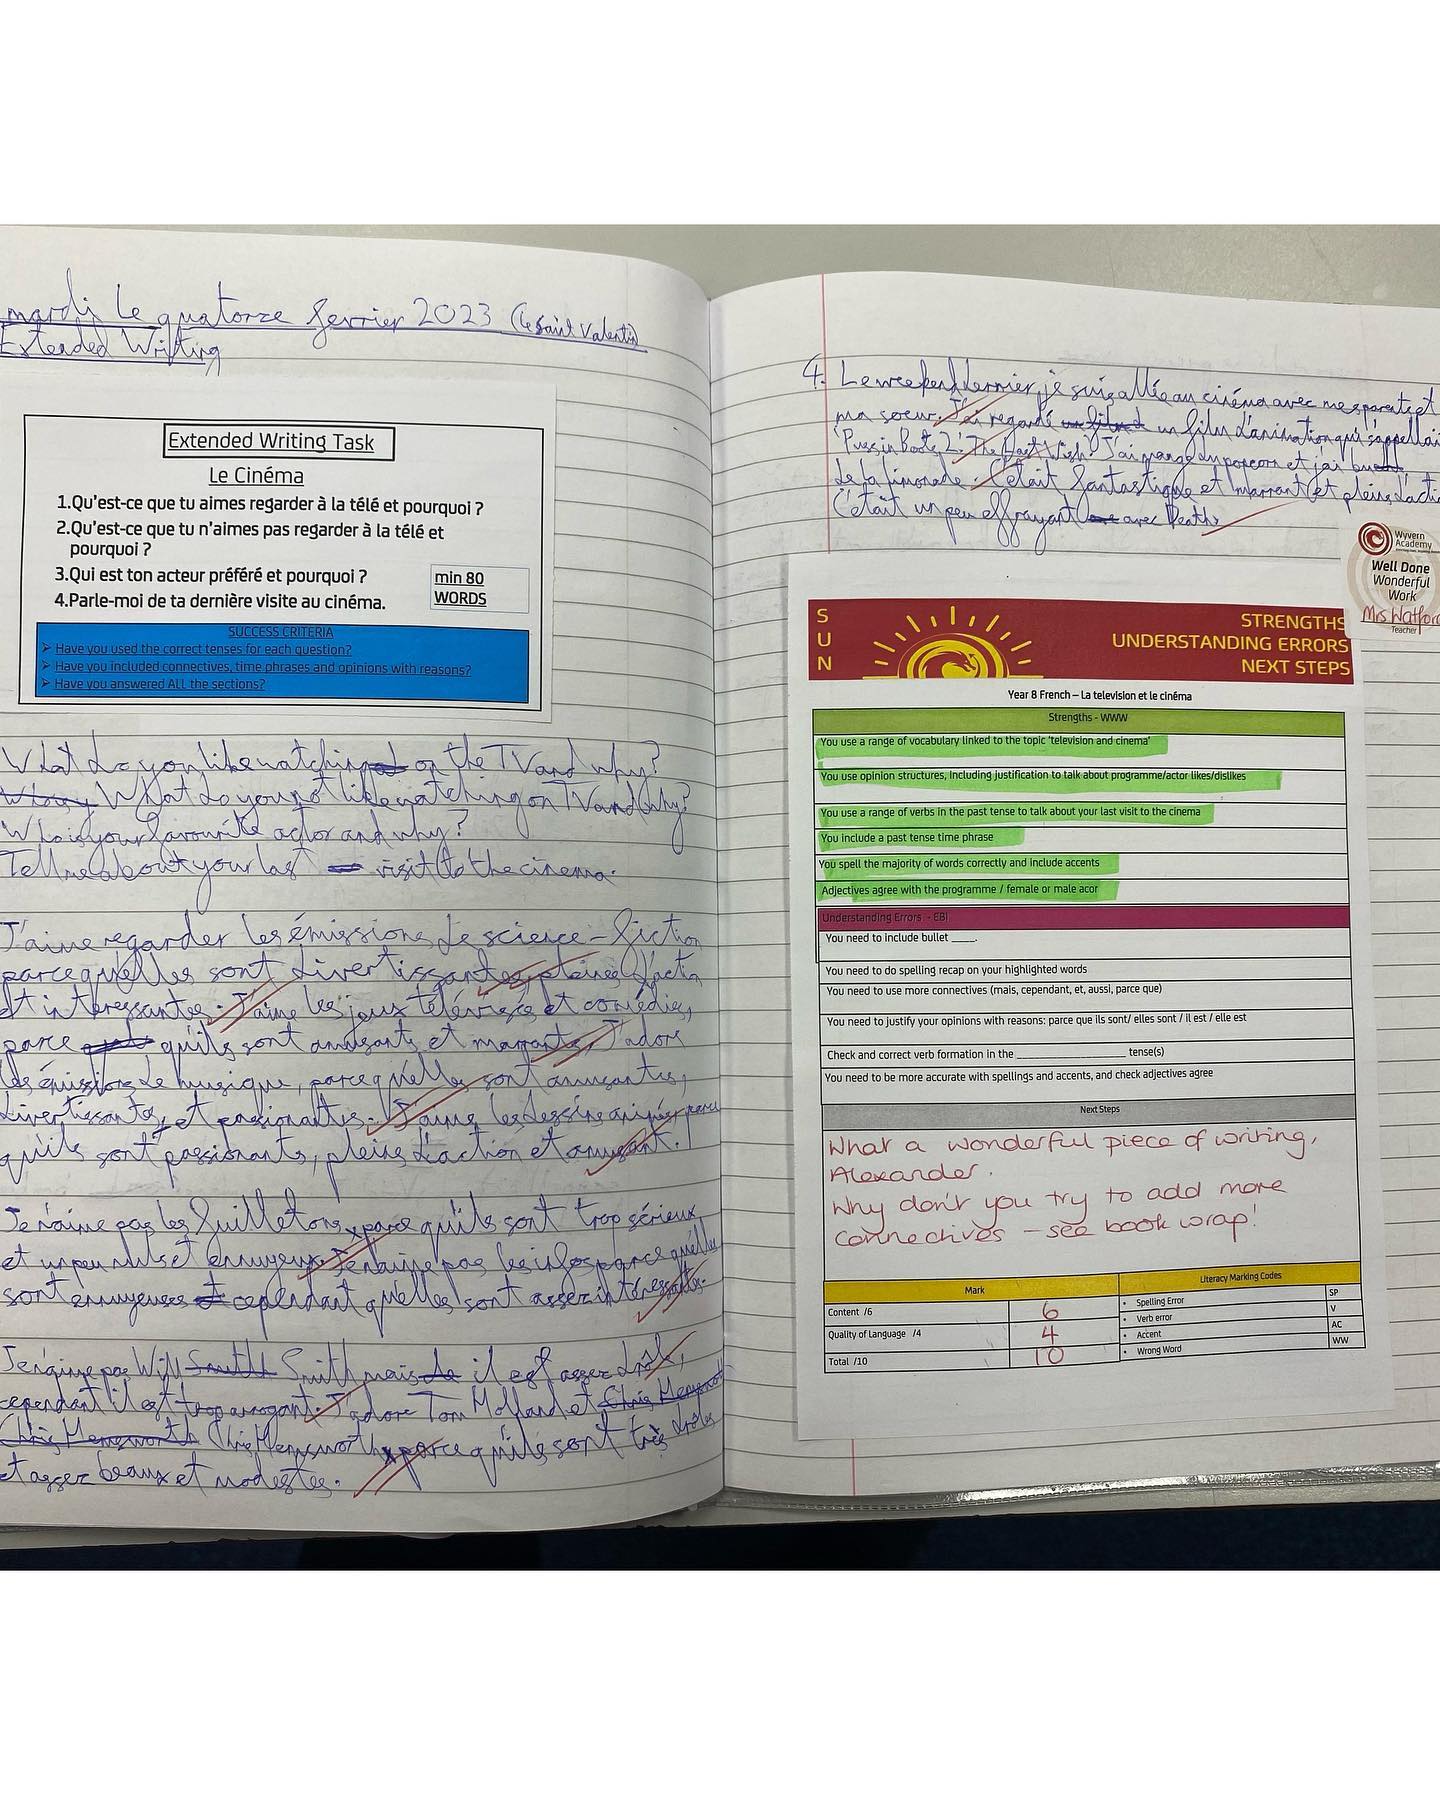 mardi le quatorze fevrier 2023 (le saint Valentin)
Extended Writing
Extended Writing Task
Le Cinéma
1.Qu'est-ce que tu aimes regarder à la télé et pourquoi ?
2.Qu'est-ce que tu n'aimes pas regarder à la télé et
pourquoi ?
3.Qui est ton acteur préféré et pourquoi ?
4.Parle-moi de ta dernière visite au cinéma.
min 80
WORDS
SUCCESS CRITERIA
Have you used the correct tenses for each question?
Have you included connectives, time phrases and opinions with reasons?
Have you answered ALL the sections?
What do you like watching on the TV and why?
What do you not like watching on TV and why?
Who is your favourite actor and why?
Tell me about your last visit to the cinema.
J'aime regarder les émissions de science-fiction
parce qu'elles sont divertissantes, pleines d'action
et interessantes. J'aime les jeux télévisés et comédies,
parce qu'ils sont amusants et marrants. J'adore
les émissions de musique, parce qu'elles sont amusantes,
divertissantes, et passionantes. J'aime les dessins animés parce
qu'ils sont passionants, pleins d'action et amusant.
Je n'aime pas les fuilletons, parce qu'ils sont trop sérieux
et un peu nuls et ennuyeux. Je n'aime pas les infos parce qu'elles
sont ennuyeuses cependant qu'elles sont assez intéressantes.
Je n'aime pas Will Smith mais il est assez drôle,
cependant il est trop arrogant. J'adore Tom Holland et
Chris Hemsworth, parce qu'ils sont très drôles
et assez beaux et modestes.
4. Le weekend dernier, je suis allée au cinéma avec mes parents et
ma soeur. J'ai regardé un film d'animation qui s'appellai
'Puss in Boots 2: The Last Wish' J'ai mangé du popcorn et j'ai bu
de la limonade. C'était fantastique et marrant et pleins d'acti
C'était un peu effrayant avec Death.
Wyvern
Academy
Well Done
Wonderful
Work
Mrs Watford
Teacher
S
U
N
STRENGTHS
UNDERSTANDING ERRORS
NEXT STEPS
Year 8 French – La television et le cinéma
Strengths - WWW
You use a range of vocabulary linked to the topic 'television and cinema'
You use opinion structures, including justification to talk about programme/actor likes/dislikes
You use a range of verbs in the past tense to talk about your last visit to the cinema
You include a past tense time phrase
You spell the majority of words correctly and include accents
Adjectives agree with the programme / female or male acor
Understanding Errors - EBI
You need to include bullet ____.
You need to do spelling recap on your highlighted words
You need to use more connectives (mais, cependant, et, aussi, parce que)
You need to justify your opinions with reasons: parce que ils sont/ elles sont / il est / elle est
Check and correct verb formation in the ____________________ tense(s)
You need to be more accurate with spellings and accents, and check adjectives agree
Next Steps
What a wonderful piece of writing,
Alexander.
Why don't you try to add more
connectives – see book wrap!
Mark
Content /6 6
Quality of Language /4 4
Total /10 10
Literacy Marking Codes
Spelling Error SP
Verb error V
Accent AC
Wrong Word WW